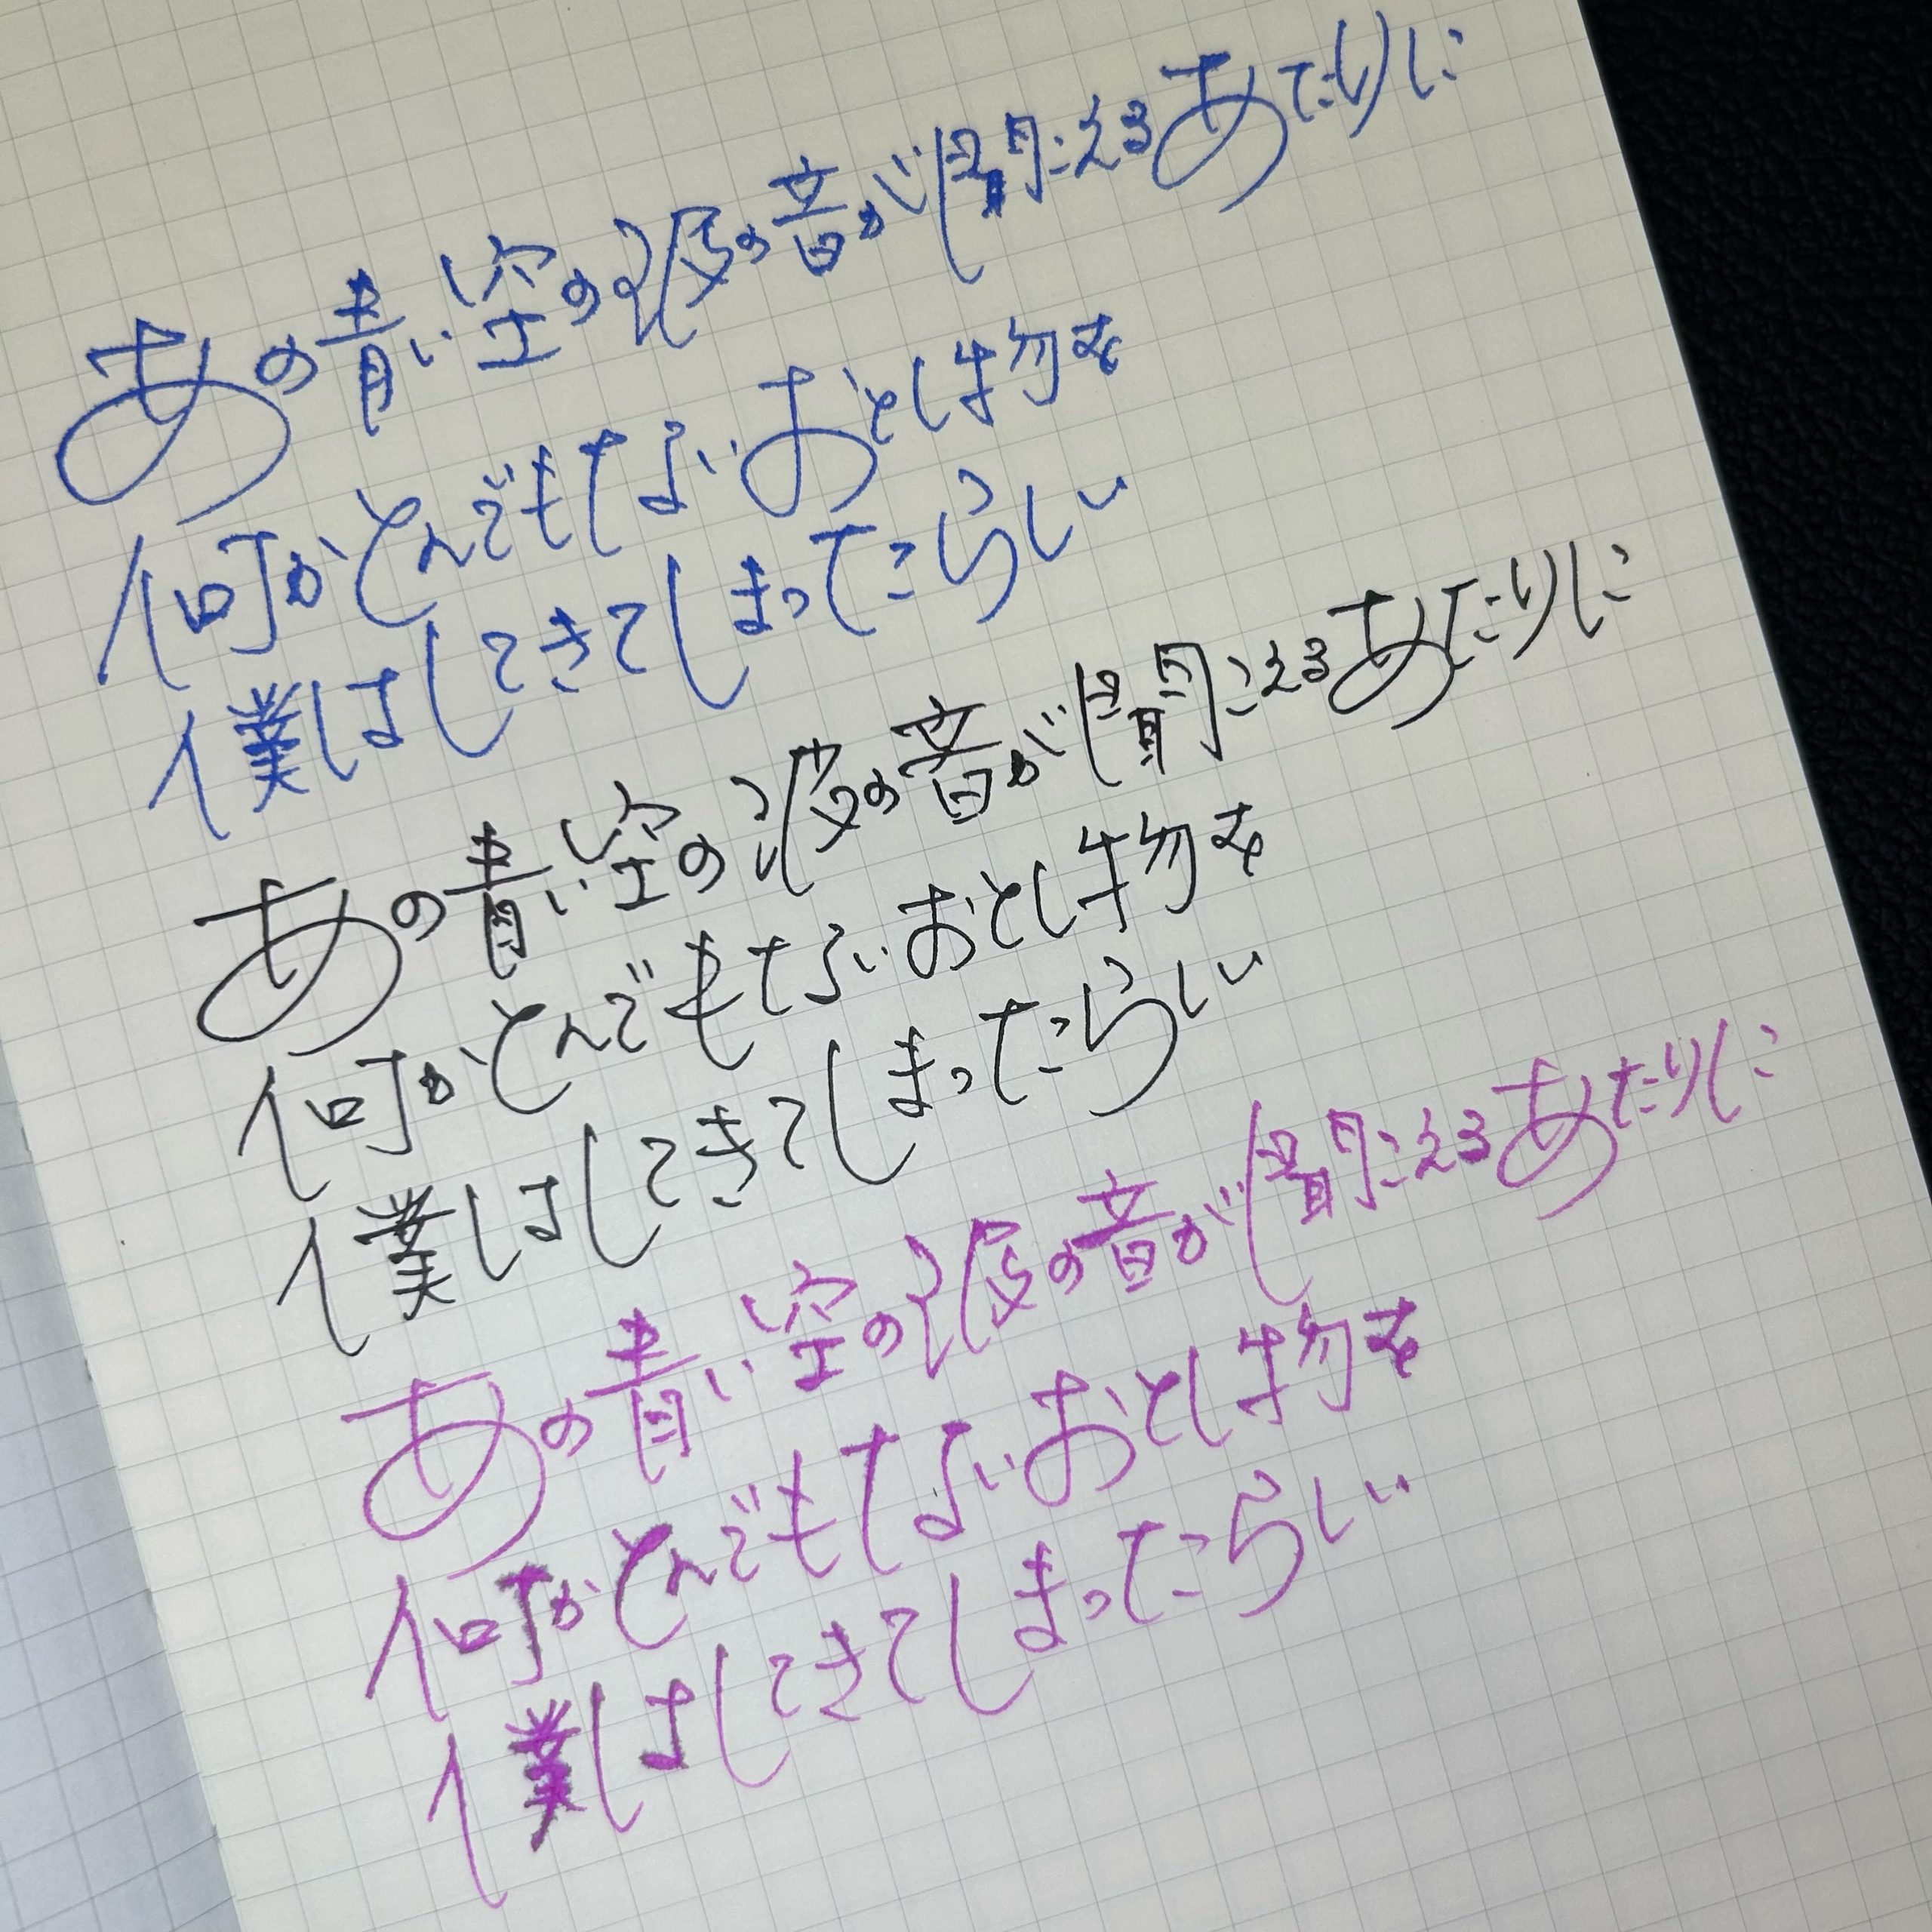 あの青い空の波の音が聞こえるあたりに
何かとんでもないおとし物を
僕はしてきてしまったらしい
あの青い空の波の音が聞こえるあたりに
何かとんでもないおとし物を
僕はしてきてしまったらしい
あの青い空の波の音が聞こえるあたりに
何かとんでもないおとし物を
僕はしてきてしまったらしい